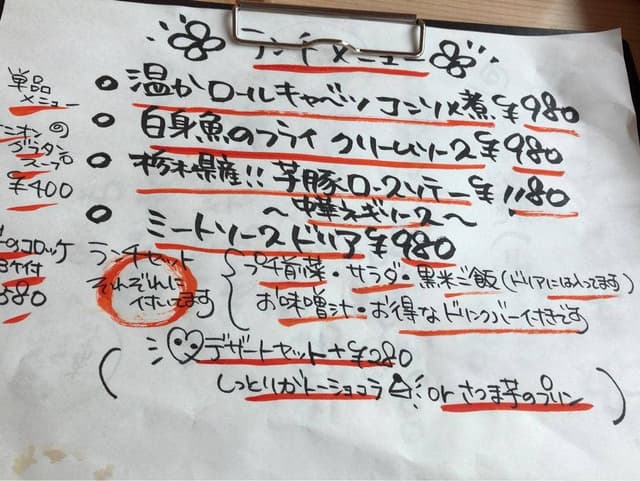 ランチメニュー
温かロールキャベツ コンソメ煮 ¥980
白身魚のフライ クリームソース ¥980
栃木県産!! 芋豚ロースソテー ¥1180
～中華ネギソース～
ミートソースドリア ¥980
ランチセット
それぞれに
付いてます
プチ前菜・サラダ・黒米ご飯(ドリアには入ってます)
お味噌汁・お得なドリンクバー付きです
デザートセット+¥280
(しっとりガトーショコラ or さつま芋のプリン)
単品
メニュー
ニオンの
グラタン
スープ
¥400
コロッケ
付
580